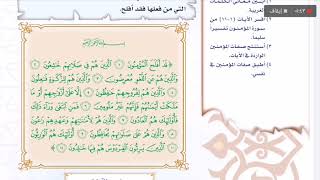 التي من فعلها فقد أفلح.
قَدْ أَفْلَحَ الْمُؤْمِنُونَ ۝ الَّذِينَ هُمْ فِي صَلَاتِهِمْ خَاشِعُونَ ۝
وَالَّذِينَ هُمْ عَنِ اللَّغْوِ مُعْرِضُونَ ۝ وَالَّذِينَ هُمْ لِلزَّكَاةِ فَاعِلُونَ ۝
وَالَّذِينَ هُمْ لِفُرُوجِهِمْ حَافِظُونَ ۝ إِلَّا عَلَى أَزْوَاجِهِمْ أَوْ مَا
مَلَكَتْ أَيْمَانُهُمْ فَإِنَّهُمْ غَيْرُ مَلُومِينَ ۝ فَمَنِ ابْتَغَى وَرَاءَ ذَلِكَ
فَأُولَئِكَ هُمُ الْعَادُونَ ۝ وَالَّذِينَ هُمْ لِأَمَانَاتِهِمْ وَعَهْدِهِمْ رَاعُونَ
۝ وَالَّذِينَ هُمْ عَلَى صَلَوَاتِهِمْ يُحَافِظُونَ ۝ أُولَئِكَ هُمُ الْوَارِثُونَ
۝ الَّذِينَ يَرِثُونَ الْفِرْدَوْسَ هُمْ فِيهَا خَالِدُونَ ۝
معاني الكلمات
٢. أفسر الآيات (١-١١) من
سورة المؤمنون تفسيرا
سليما.
٣. أستنتج صفات المؤمنين
الواردة في الآيات.
٤. أطبق صفات المؤمنين في
نفسي.
إيقاف